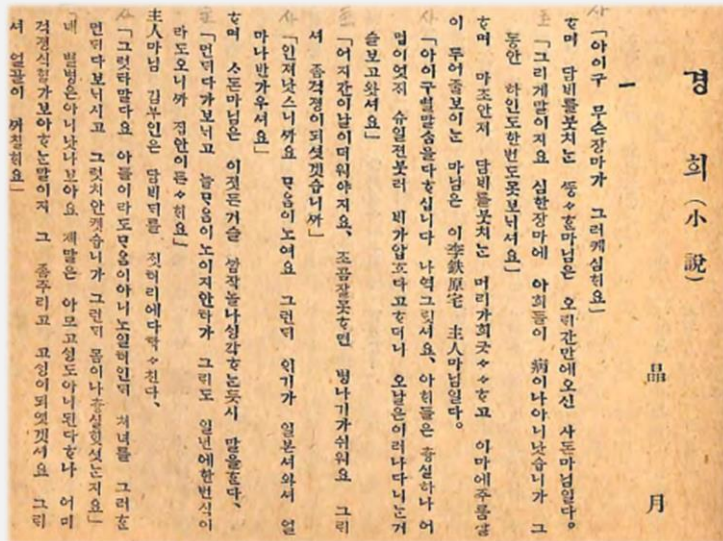 경희(小說)
晶月
一
「아이구 무슨장마가 그러케심해요」
하며 담비를붓치는 뚱々한마님은 오래간만에오신 사돈마님일다。
「그리게말이지요 심한장마에 아희들이 病이나아니낫습니가 그
동안 하인도한번도못보냇셔요」
하며 마조안져 담비를붓치는 머리가희긋々々하고 이마에주름살
이 두어줄보이는 마님은 이李鉄原宅 主人마님일다。
「아이구별말슴을다하십니다 나역그럿셔요、아희들은 츙실하나 어
멈이엇지 슈일젼붓터 비가압흐다고하더니 오날은이러나다니는거
슬보고왓셔요」
「어지간이날이더워야지요、조곰잘못하면 병나기가쉬워요 그리
셔 좀걱졍이되셧겟습니까」
「인져낫스니까요 마음이노여요 그런데 애기가 일본셔와셔 얼
마나반가우셔요」
하며 사돈마님은 이젓든거슬 깜작놀나싱각하는듯시 말을한다、
「먼데다가보니고 늘마음이노이지안타가 그리도 일년에한번식이
라도오니까 집안이든々해요」
主人마님 김부인은 담비떠를 짓허리에다탁々친다、
「그럿타말다요 아들이라도마음이아니노일터인데 처녀를 그러한
먼데다보니시고 그럿치안켓습니가 그런데 몸이나츙실햇섯는지요」
「네 별병은아니낫나보아요 제말은 아모고싱도아니된다하나 어미
걱졍식힐가보아하는말이지 그 좀주리고 고싱이되엿겟셔요 그리
셔 얼골이 꺼칠해요」